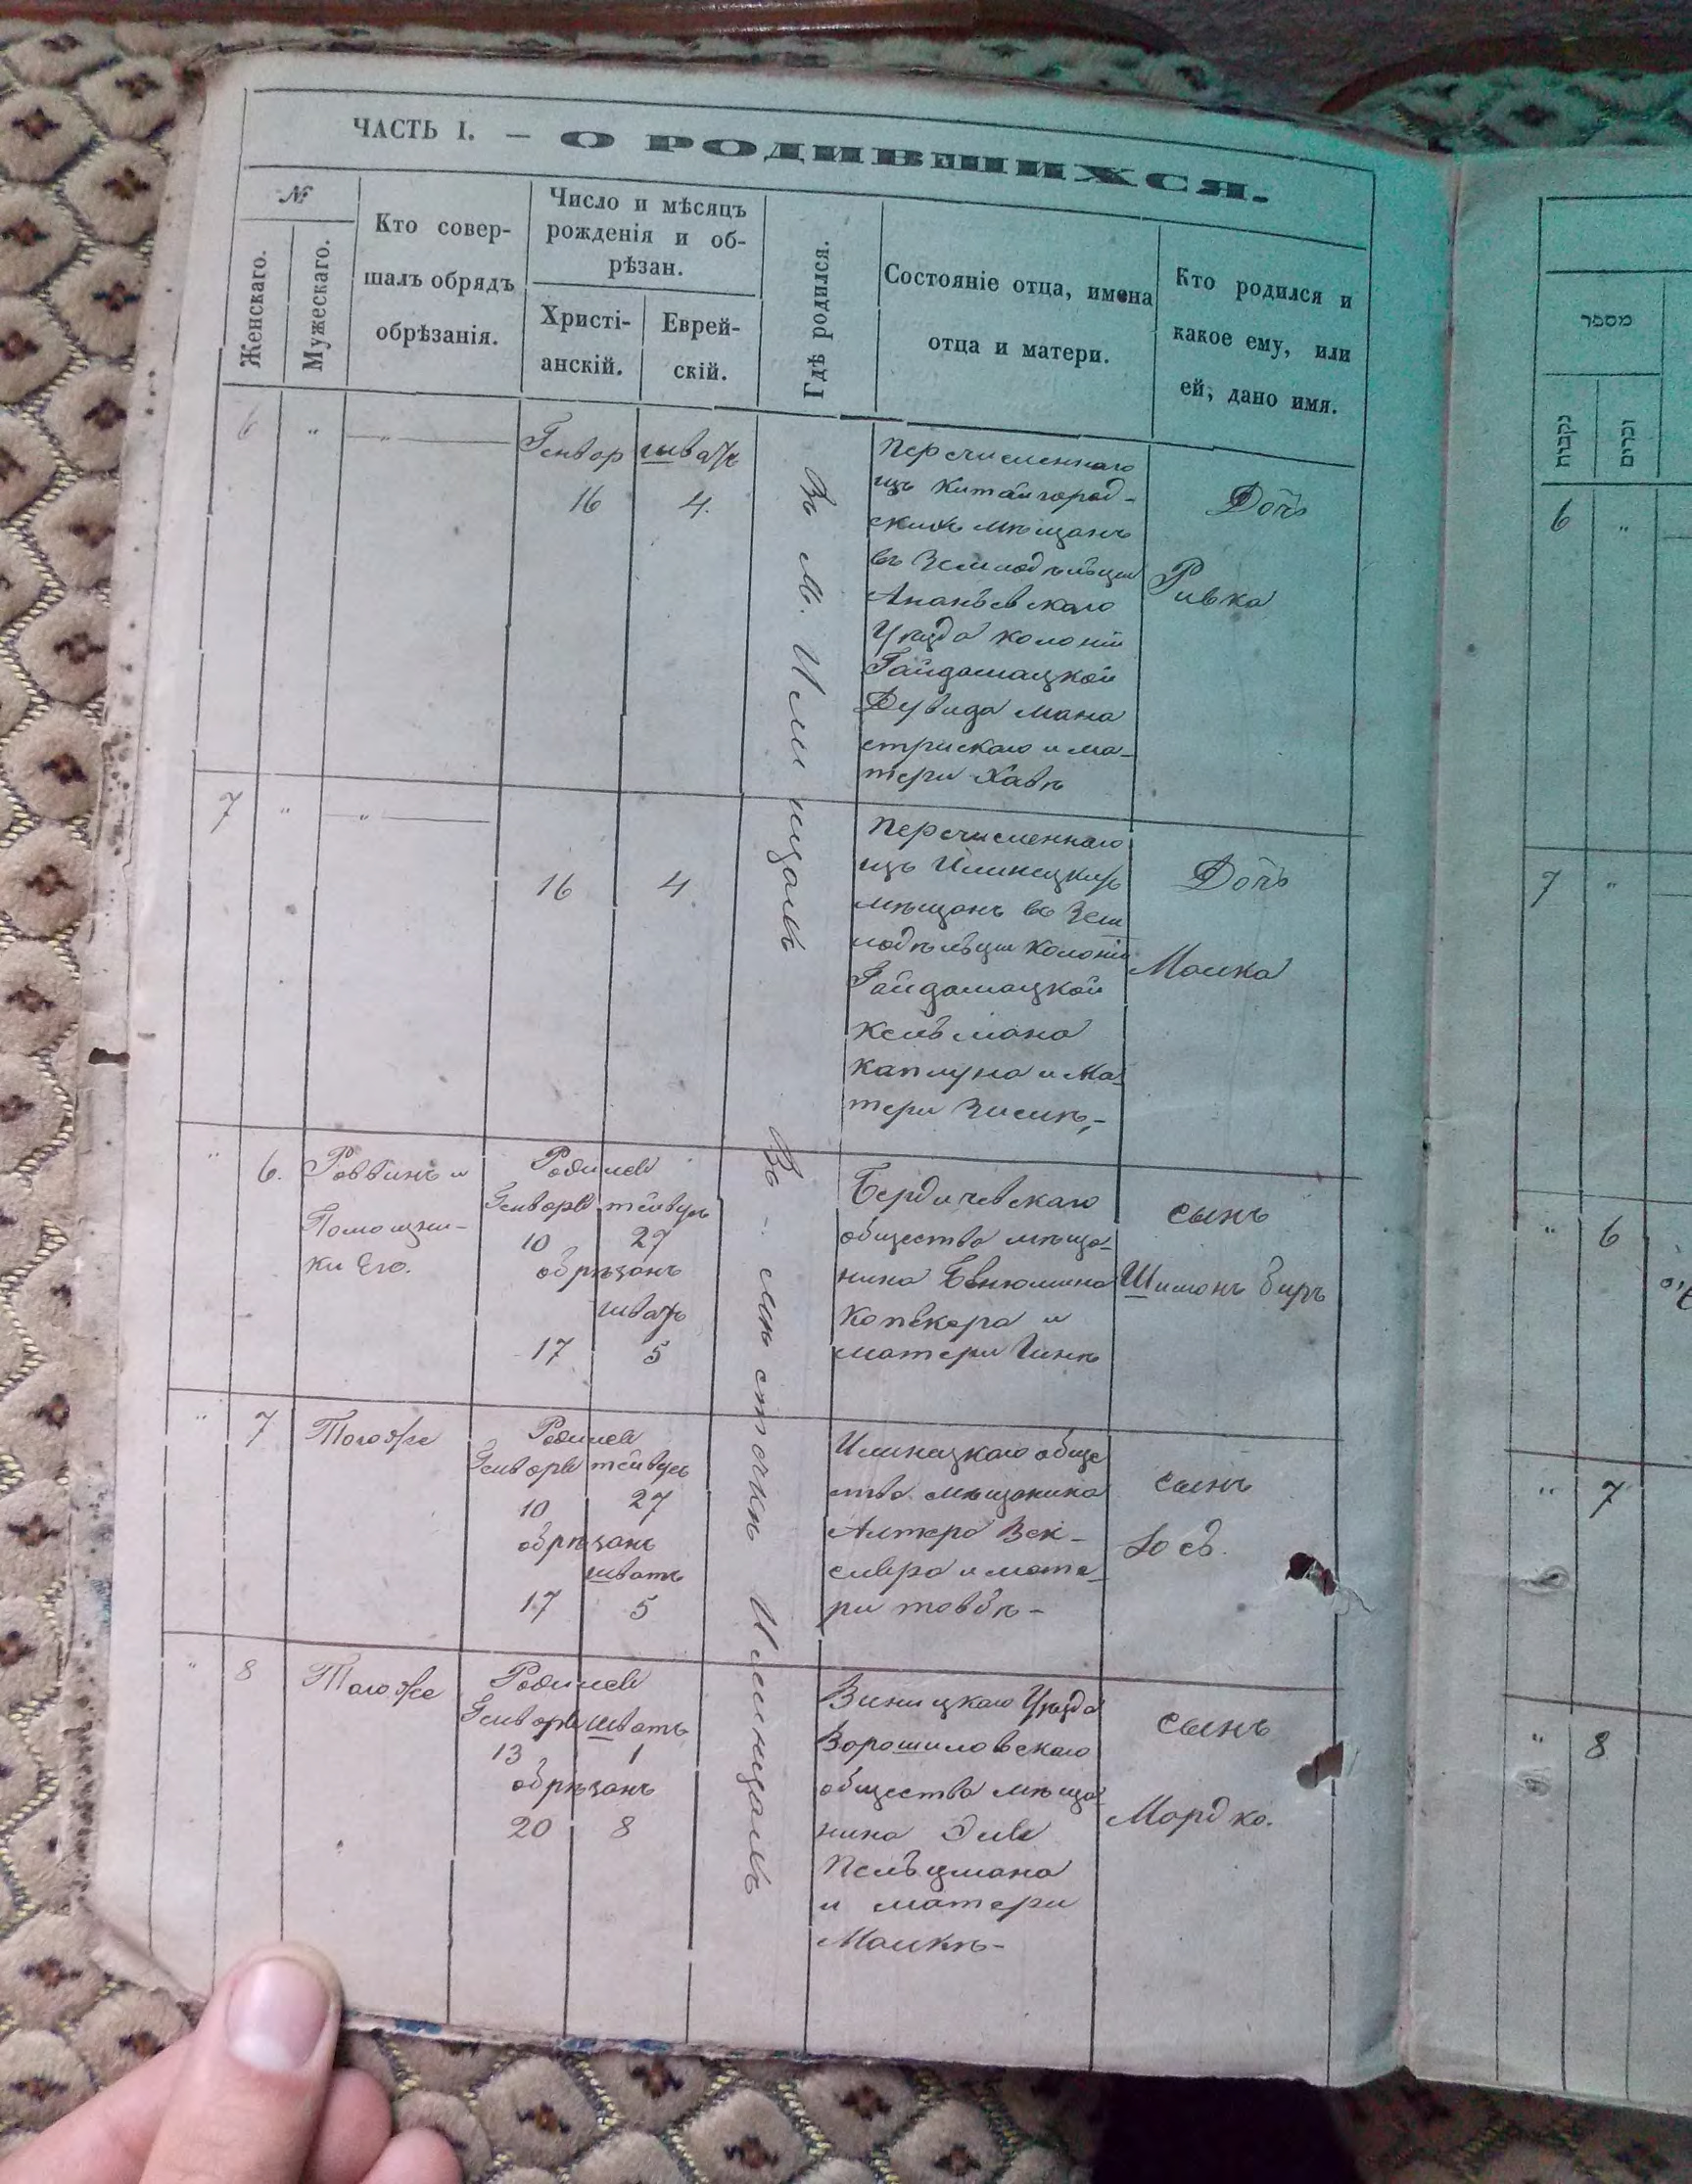 ЧАСТЬ I. — О РОДИВШИХСЯ.
№
Женскаго.
Мужескаго.
Кто совер-
шалъ обрядъ
обрѣзанія.
Число и мѣсяцъ
рожденія и об-
рѣзан.
Христі-
анскій.
Еврей-
скій.
Гдѣ родился.
Состояніе отца, имена
отца и матери.
Кто родился и
какое ему, или
ей, дано имя.
6 " —"—
Генвор шватъ
16 4.
Въ м. Илинцахъ
Перечисленнаго
изъ Китайгород-
скихъ мѣщанъ
въ Земледѣльци
Ананьевскаго
Уѣзда колоніи
Гайдамацкой
Дувида мана
стрискаго и ма-
тери Хавѣ
Дочь
Ривка
7 " —"—
16 4
Перечисленнаго
изъ Илинецкихъ
мѣщанъ въ Зем
ледѣльци колоніи
Гайдамацкой
Кельмана
Каплуна и Ма
тери Зисик,-
Дочь
Малка
" 6. Раввинъ и
Помощни-
ки Его.
Родился
Генворя тейвусъ
10 27
обрѣзанъ
шватъ
17 5
Въ - мѣсточкѣ Илинцахъ
Бердичевскаго
общества мѣща-
нина
и
матери
сынъ
Шимонъ Беръ
" 7 Тогоже
Родился
Генворя тейвусъ
10 27
обрѣзанъ
шватъ
17 5
Илинецкаго обще
ства мѣщанина
Алтера Век-
слера и мате-
ри товбѣ-
сынъ
" 8 Тогоже
Родился
Генворя шватъ
13 1
обрѣзанъ
20 8
Виницкаго Уѣзда
Ворошиловскаго
общества мѣща
нина Эля
Пельцмана
и матери
Малкѣ-
сынъ
Мордко.
מספר
נקבות
זכרים
6 "
7 "
" 6
" 7
" 8